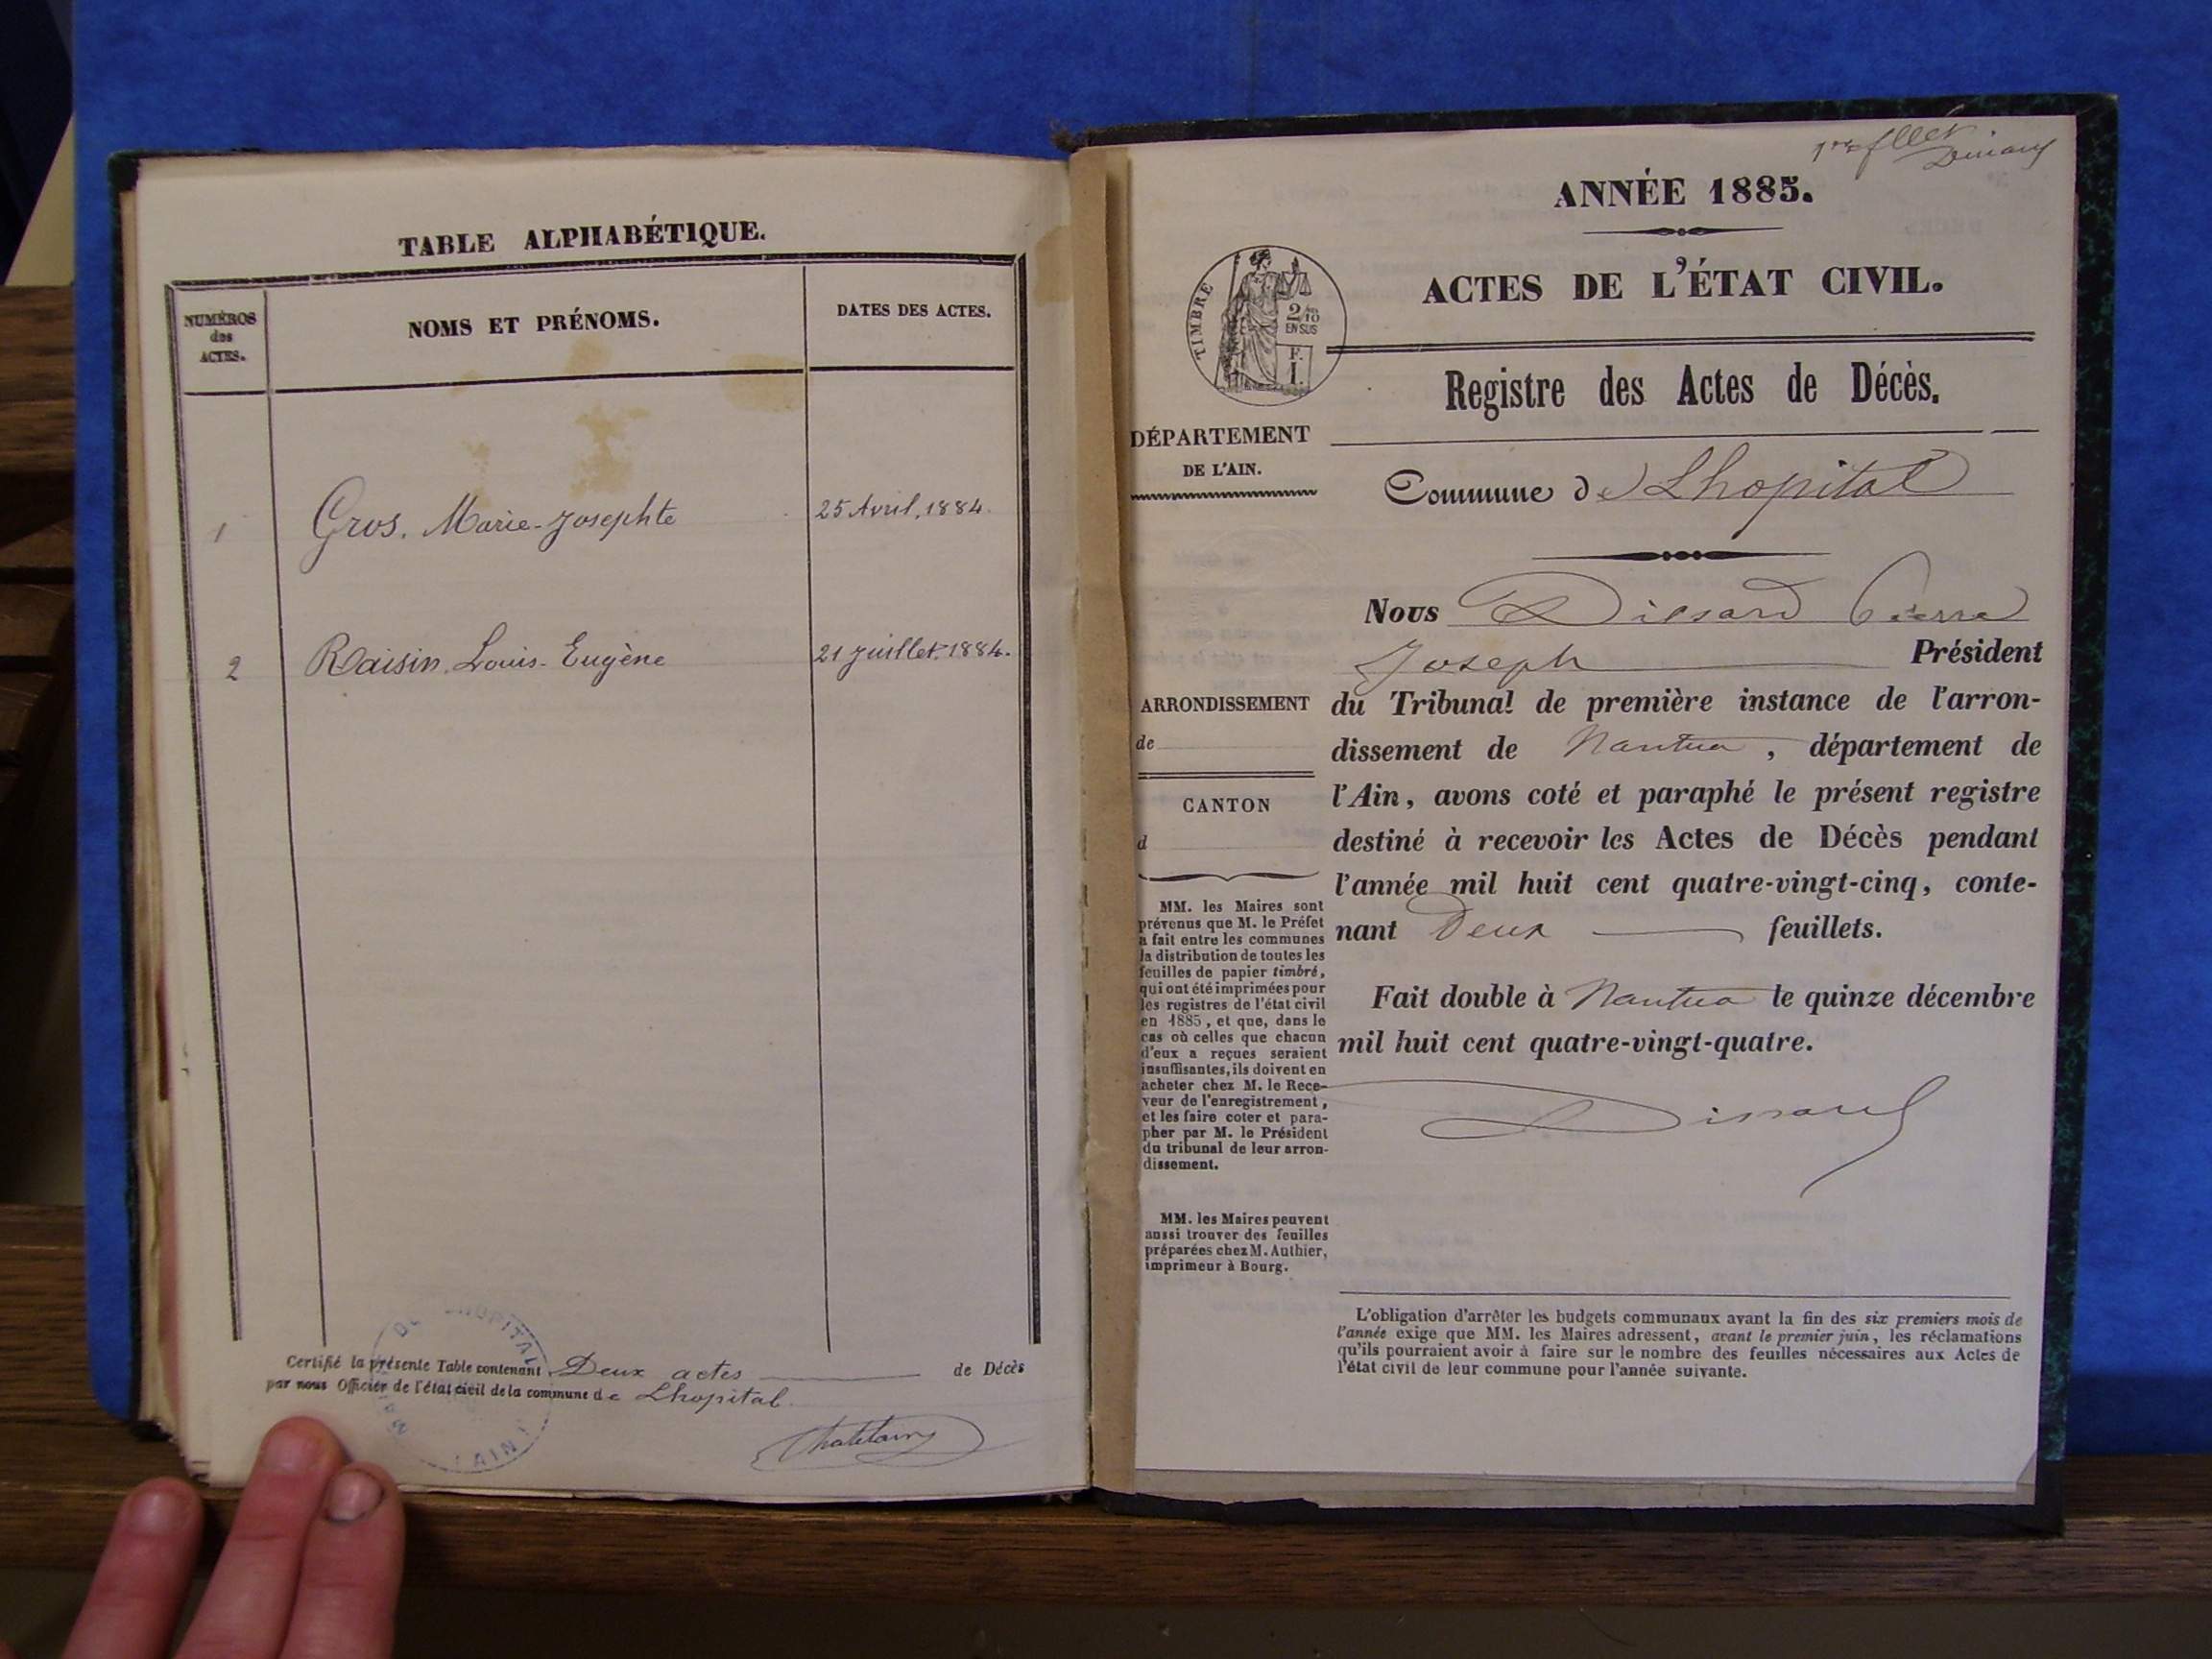 TABLE ALPHABÉTIQUE.
NUMÉROS
des
ACTES.
NOMS ET PRÉNOMS.
DATES DES ACTES.
1 Gros, Marie-Josephte 25 Avril, 1884.
2 Raisin, Louis-Eugène 21 Juillet, 1884.
Certifié la présente Table contenant Deux actes de Décès
par nous Officier de l'état civil de la commune de Lhopital.
Chatelain
AIN
1er fllet
ANNÉE 1885.
ACTES DE L'ÉTAT CIVIL.
TIMBRE
2/10
EN SUS
F.
1.
Registre des Actes de Décès.
DÉPARTEMENT
DE L'AIN.
Commune de Lhopital
Nous Dissard Pierre
Joseph Président
du Tribunal de première instance de l'arron-
dissement de Nantua, département de
l'Ain, avons coté et paraphé le présent registre
destiné à recevoir les Actes de Décès pendant
l'année mil huit cent quatre-vingt-cinq, conte-
nant Deux feuillets.
Fait double à Nantua le quinze décembre
mil huit cent quatre-vingt-quatre.
Dissard
ARRONDISSEMENT
de
CANTON
d
MM. les Maires sont
prévenus que M. le Préfet
a fait entre les communes
la distribution de toutes les
feuilles de papier timbré,
qui ont été imprimées pour
les registres de l'état civil
en 1885, et que, dans le
cas où celles que chacun
d'eux a reçues seraient
insuffisantes, ils doivent en
acheter chez M. le Rece-
veur de l'enregistrement,
et les faire coter et para-
pher par M. le Président
du tribunal de leur arron-
dissement.
MM. les Maires peuvent
aussi trouver des feuilles
préparées chez M. Authier,
imprimeur à Bourg.
L'obligation d'arrêter les budgets communaux avant la fin des six premiers mois de
l'année exige que MM. les Maires adressent, avant le premier juin, les réclamations
qu'ils pourraient avoir à faire sur le nombre des feuilles nécessaires aux Actes de
l'état civil de leur commune pour l'année suivante.